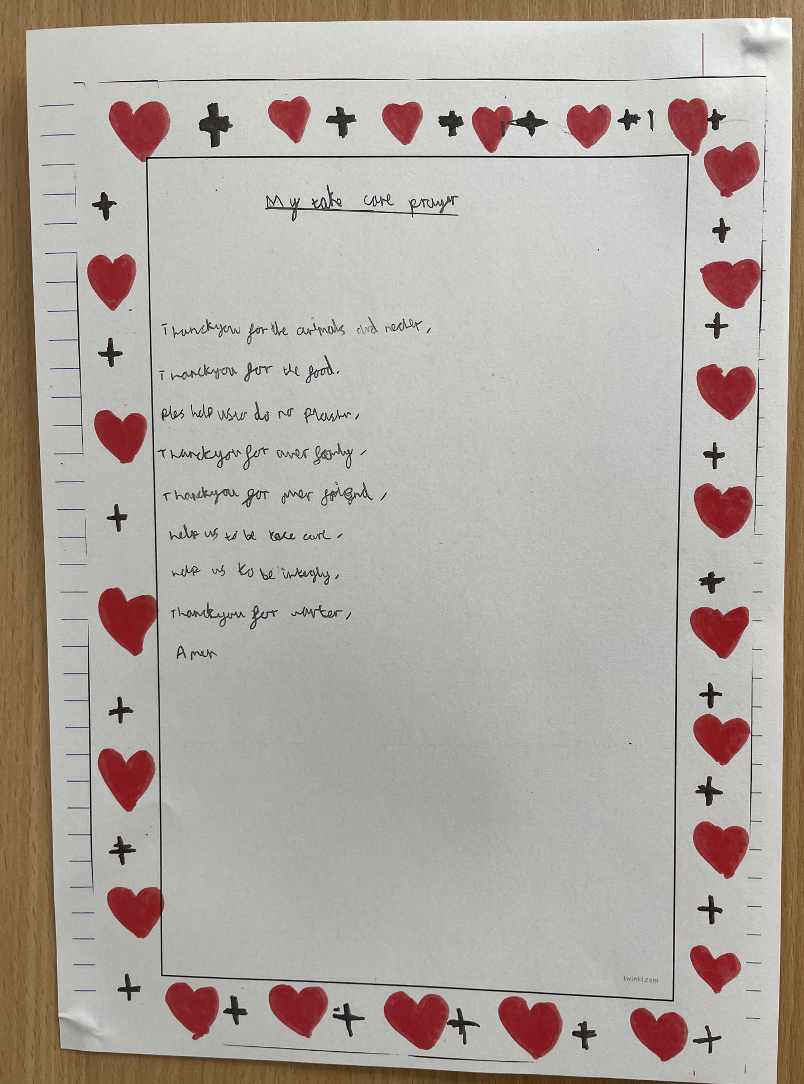 My take care prayer
Thanckyou for the animals and necher,
Thanckyou for the food.
ples help us to do no plastir,
Thanckyou for ower family,
Thanckyou for ower friend,
help us to be take care,
help us to be integly,
Thanckyou for warter,
Amen
twinkl.com